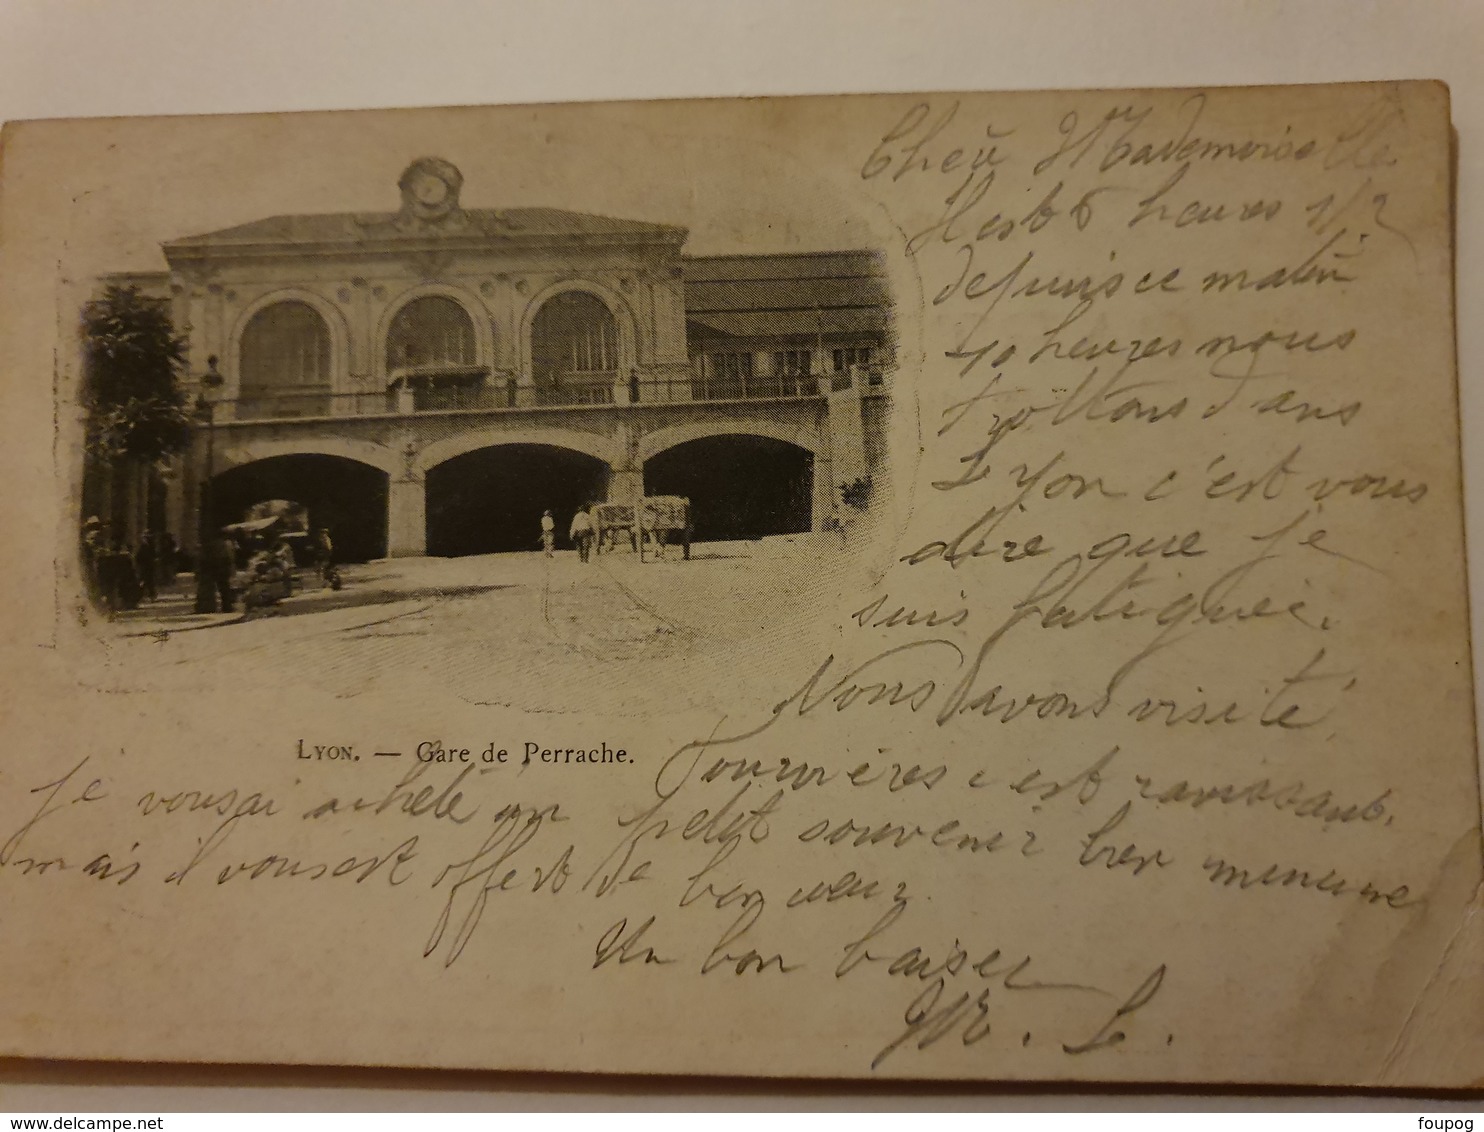 Cheii Mademoiselle
Il est 6 heures 1/2
depuis ce matin
10 heures nous
trottons dans
Lyon c'est vous
dire que je
suis fatiguée.
Nous avons visité
LYON. — Gare de Perrache.
Fourvières c'est ravissant.
je vous ai acheté un petit souvenir bien minime
mais il vous est offert de bon cœur.
Un bon baiser
M. L.
foupog